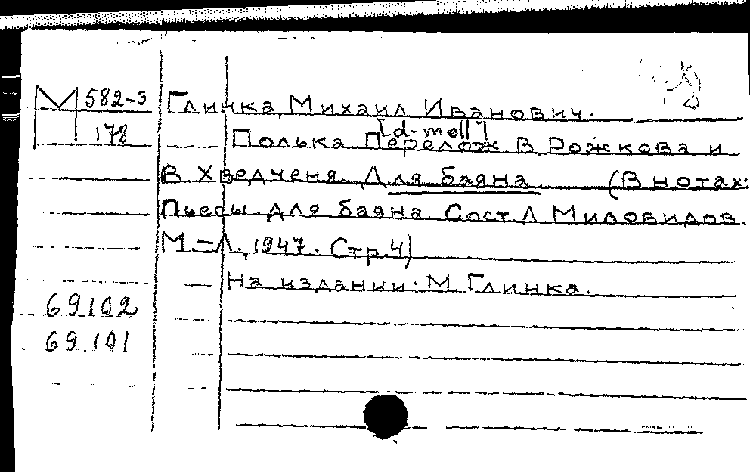 М 582-3 Глинка, Михаил Иванович.
178 [d-moll]
Полька. Перелож. В. Рожкова и
В. Хведченя. Для баяна. (В нотах:
Пьесы для баяна. Сост. А. Миловидов.
М.-Л., 1947. Стр. 4)
На издании: М. Глинка.
69102
69.101